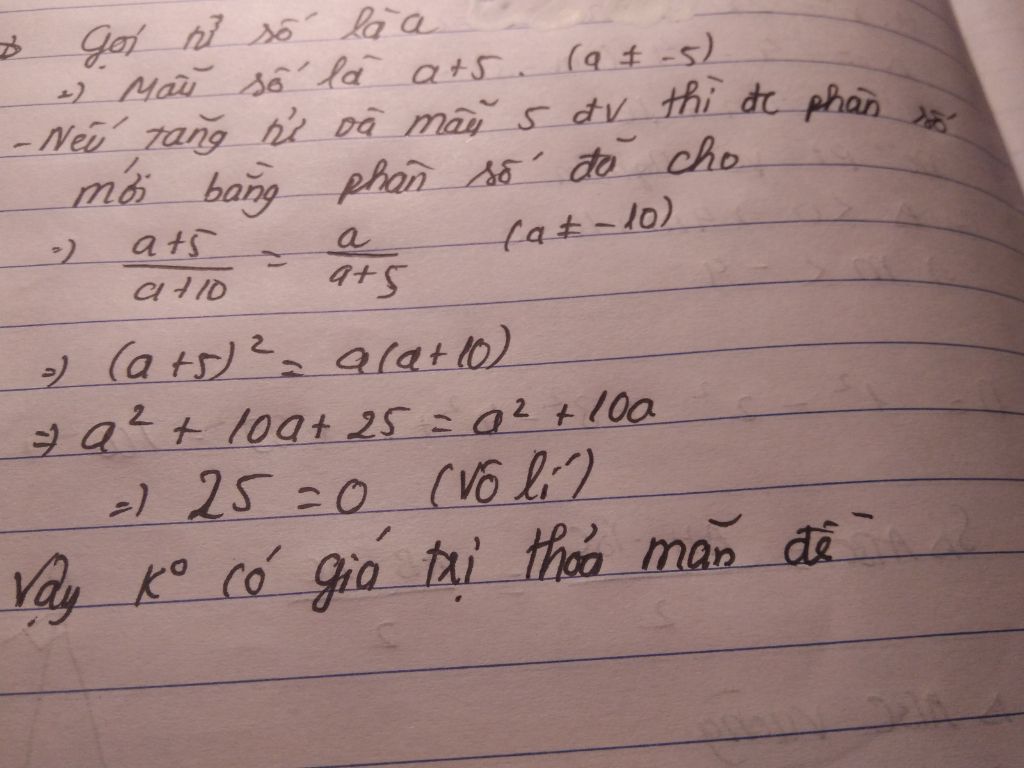 => Gọi tử số là a
=> Mẫu số là a+5. (a ≠ -5)
- Nếu tăng tử và mẫu 5 đv thì đc phân số
mới bằng phân số đã cho
=> \frac{a+5}{a+10} = \frac{a}{a+5} (a ≠ -10)
=> (a+5)² = a(a+10)
=> a² + 10a + 25 = a² + 10a
=> 25 = 0 (Vô lí)
Vậy K⁰ có giá trị thỏa mãn đề